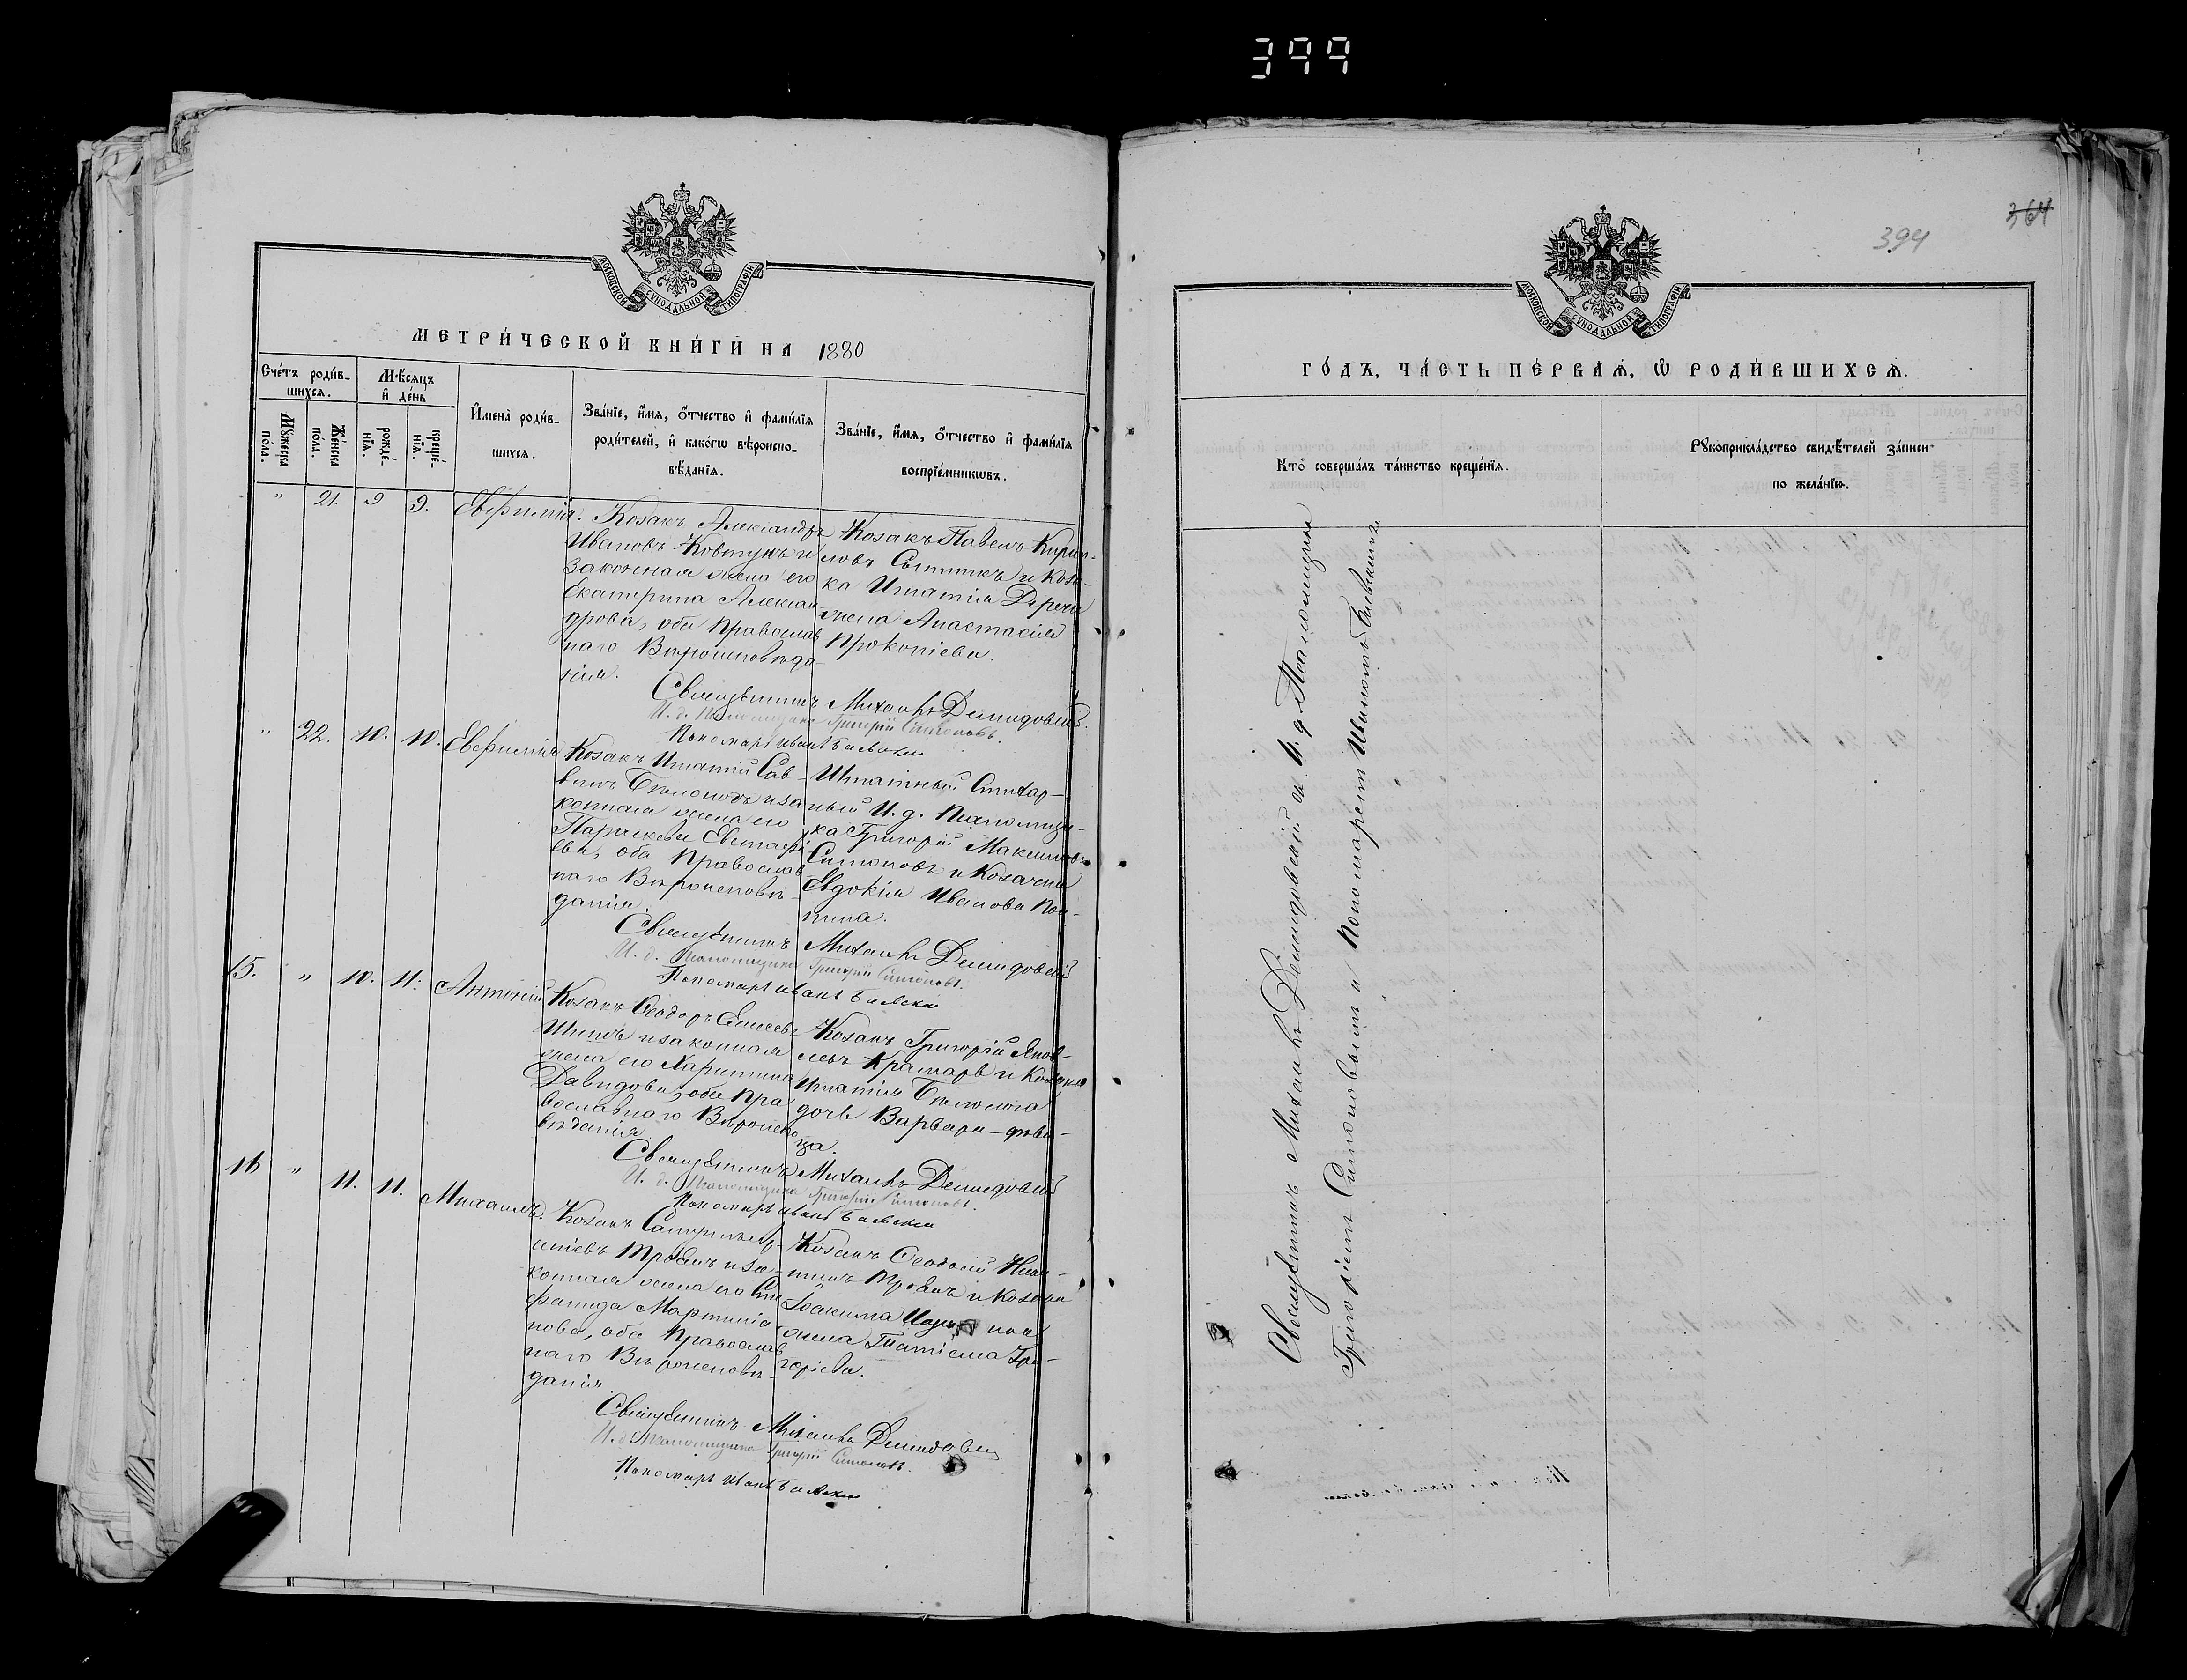 399
МОСКОВСКОЙ СѴНОДАЛЬНОЙ ТИПОГРАФІИ
МЕТРИ́ЧЕСКОЙ КНИ́ГИ НА 1880
Сче́тъ роди́в-
шихся.
Мѣ́сяцъ
и҆ де́нь
Мꙋ́жеска
по́ла.
Же́нска
по́ла.
рожде́-
нїѧ.
креще́-
нїѧ.
И҆мена̀ роди́в-
шихся.
Зва́нїе, и҆́мя, ѻ҆́тчество и҆ фами́лїя
роди́телей, и҆ како́гѡ вѣроиспо-
вѣ́данїя.
Зва́нїе, и҆́мя, ѻ҆́тчество и҆ фами́лїя
воспрїе́мникѡвъ.
" 21. 9 9. Евфимія.
Козакъ Александръ
Ивановъ Ковтунъ и
законная жена его
Екатерина Алексан-
дрова, оба православ
наго Вѣроисповѣда-
нія.
Козакъ Павелъ Кирил-
ловъ Сытникъ и Коза-
ка Игнатія Дереч
жена Анастасія
Прокопіева.
Священникъ Михаилъ Демидовскій.
И. д. Псаломщика Григорій Симоновъ.
Пономарь Иванъ Баевскій
" 22. 10. 10. Евфимія
Козакъ Игнатій Сав-
винъ Бѣлоног и за
конная жена его
Параскева Евстафі
ева, оба Православ
наго Вѣроисповѣ-
данія.
Штатный Стихар-
ный И. д. Псаломщи-
ка Григорій Максимовъ
Симоновъ и Козачка
Евдокія Иванова
Священникъ Михаилъ Демидовскій
И. д. Псаломщика Григорій Симоновъ.
Пономарь Иванъ Баевскій
15. " 10. 11. Антоній
Козакъ Ѳеодоръ Елисеевъ
и законная
жена его Харитина
Давидова, оба Пра
вославнаго Вѣроиспо
вѣданія.
Козакъ Григорій Яков-
левъ Крамарь и Козака
Игнатія Бѣлонога
дочь Варвара - дѣви-
ца.
Священникъ Михаилъ Демидовскій
И. д. Псаломщика Григорій Симоновъ.
Пономарь Иванъ Баевскій
16 " 11. 11. Михаилъ.
Козакъ
Троянъ и за-
конная жена его Сте
фанида Мартинія-
нова, оба Православ
наго Вѣроисповѣ-
данія.
Козакъ Ѳеодосій
Троянъ и Козака
Іоакима
жена Татіана Гри-
горіева.
Священникъ Михаилъ Демидовскій
И. д. Псаломщика Григорій Симоновъ.
Пономарь Иванъ Баевскій
364
394
МОСКОВСКОЙ СѴНОДАЛЬНОЙ ТИПОГРАФІИ
ГО́ДЪ, ЧА́СТЬ ПЕ́РВАЯ, Ѡ҆ РОДИ́ВШИХСЯ.
Кто̀ соверша́лъ та́инство креще́нїя.
Рꙋкоприкла́дство свидѣ́телей за́писи
по жела́нїю.
Священникъ Михаилъ Демидовскій съ И. д. Псаломщика
Григоріемъ Симоновымъ и Пономаремъ Иваномъ Баевскимъ